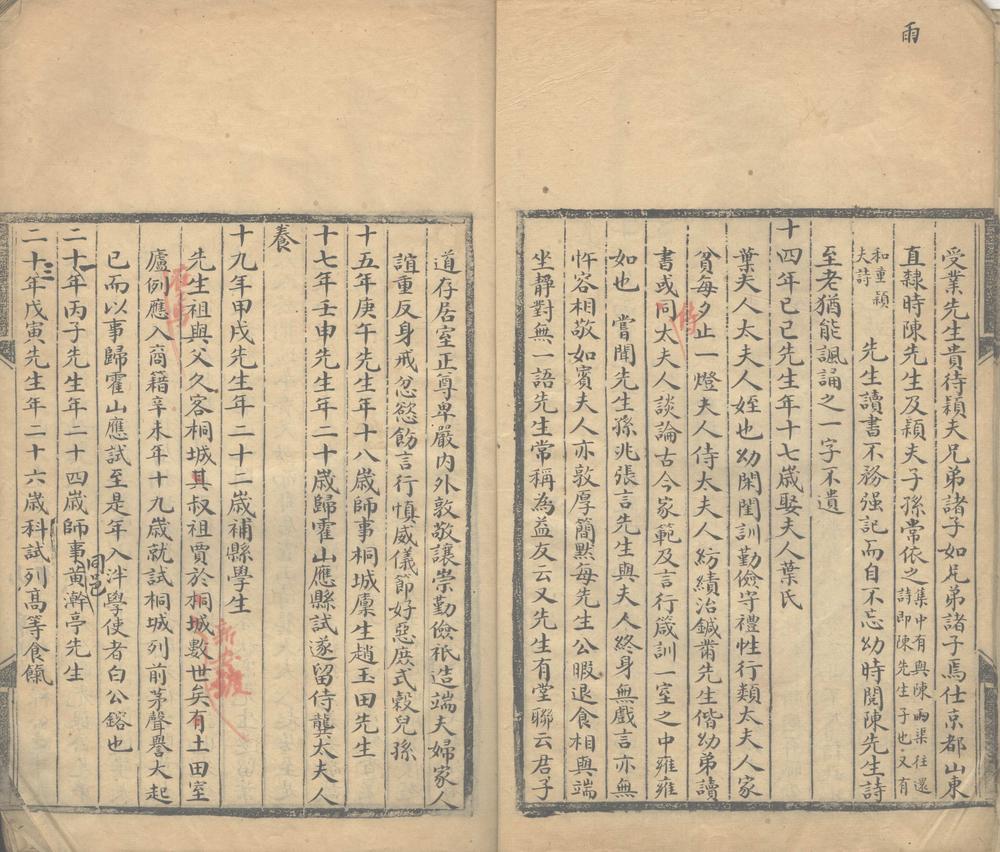 雨
受業先生貴待頴夫兄弟諸子如兄弟諸子焉仕京都山東
直隸時陳先生及頴夫子孫常依之集中有與陳雨渠往還詩即陳先生子也又有
和董頴夫詩 先生讀書不務强記而自不忘幼時閱陳先生詩
至老猶能諷誦之一字不遺
十四年己巳先生年十七歲娶夫人葉氏
葉夫人太夫人姪也幼閑閨訓勤儉守禮性行類太夫人家
貧每夕止一燈夫人侍太夫人紡績治鍼黹先生偕幼弟讀
書或同太夫人談論古今家範及言行箴訓一室之中雍雍
侍
如也 嘗聞先生孫兆張言先生與夫人終身無戲言亦無
忤容相敬如賓夫人亦敦厚簡默每先生公暇退食相與端
坐靜對無一語先生常稱為益友云又先生有堂聯云君子
道存居室正尊卑嚴內外敦敬讓崇勤儉祇造端夫婦家人
誼重反身戒忿慾飭言行慎威儀節好惡庶式穀兒孫
十五年庚午先生年十八歲師事桐城廩生趙玉田先生
十七年壬申先生年二十歲歸霍山應縣試遂留侍龔太夫人
養
十九年甲戌先生年二十二歲補縣學生
先生祖與父久客桐城其叔祖賈於桐城數世矣有土田室
廬例應入商籍辛未年十九歲就試桐城列前茅聲譽大起
已而以事歸霍山應試至是年入泮學使者白公鎔也
二十一年丙子先生年二十四歲師事同邑黃澣亭先生
二十三年戊寅先生年二十六歲科試列高等食餼